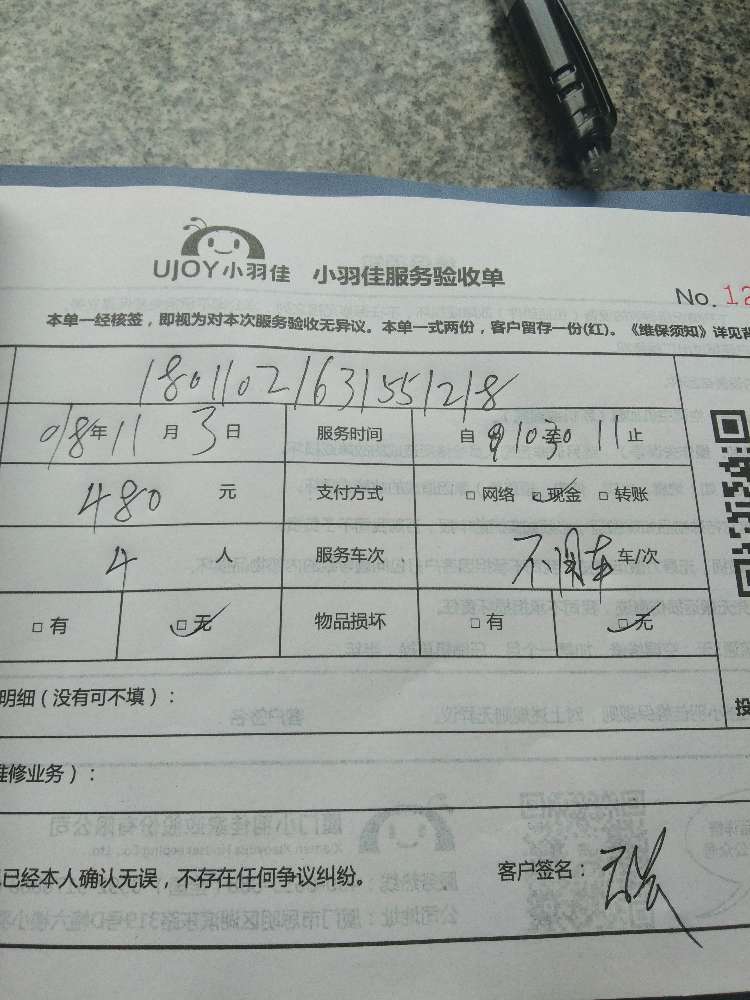 UJOY小羽佳 小羽佳服务验收单
No. 12
本单一经核签，即视为对本次服务验收无异议。本单一式两份，客户留存一份(红)。《维保须知》详见背
180110216315512 18
018年11月3日 服务时间 自 1030至11止
480元 支付方式 □网络 □现金 □转账
4人 服务车次 不用车 车/次
□有 □无 物品损坏 □有 □无
明细（没有可不填）：
维修业务）：
已经本人确认无误，不存在任何争议纠纷。 客户签名：
投